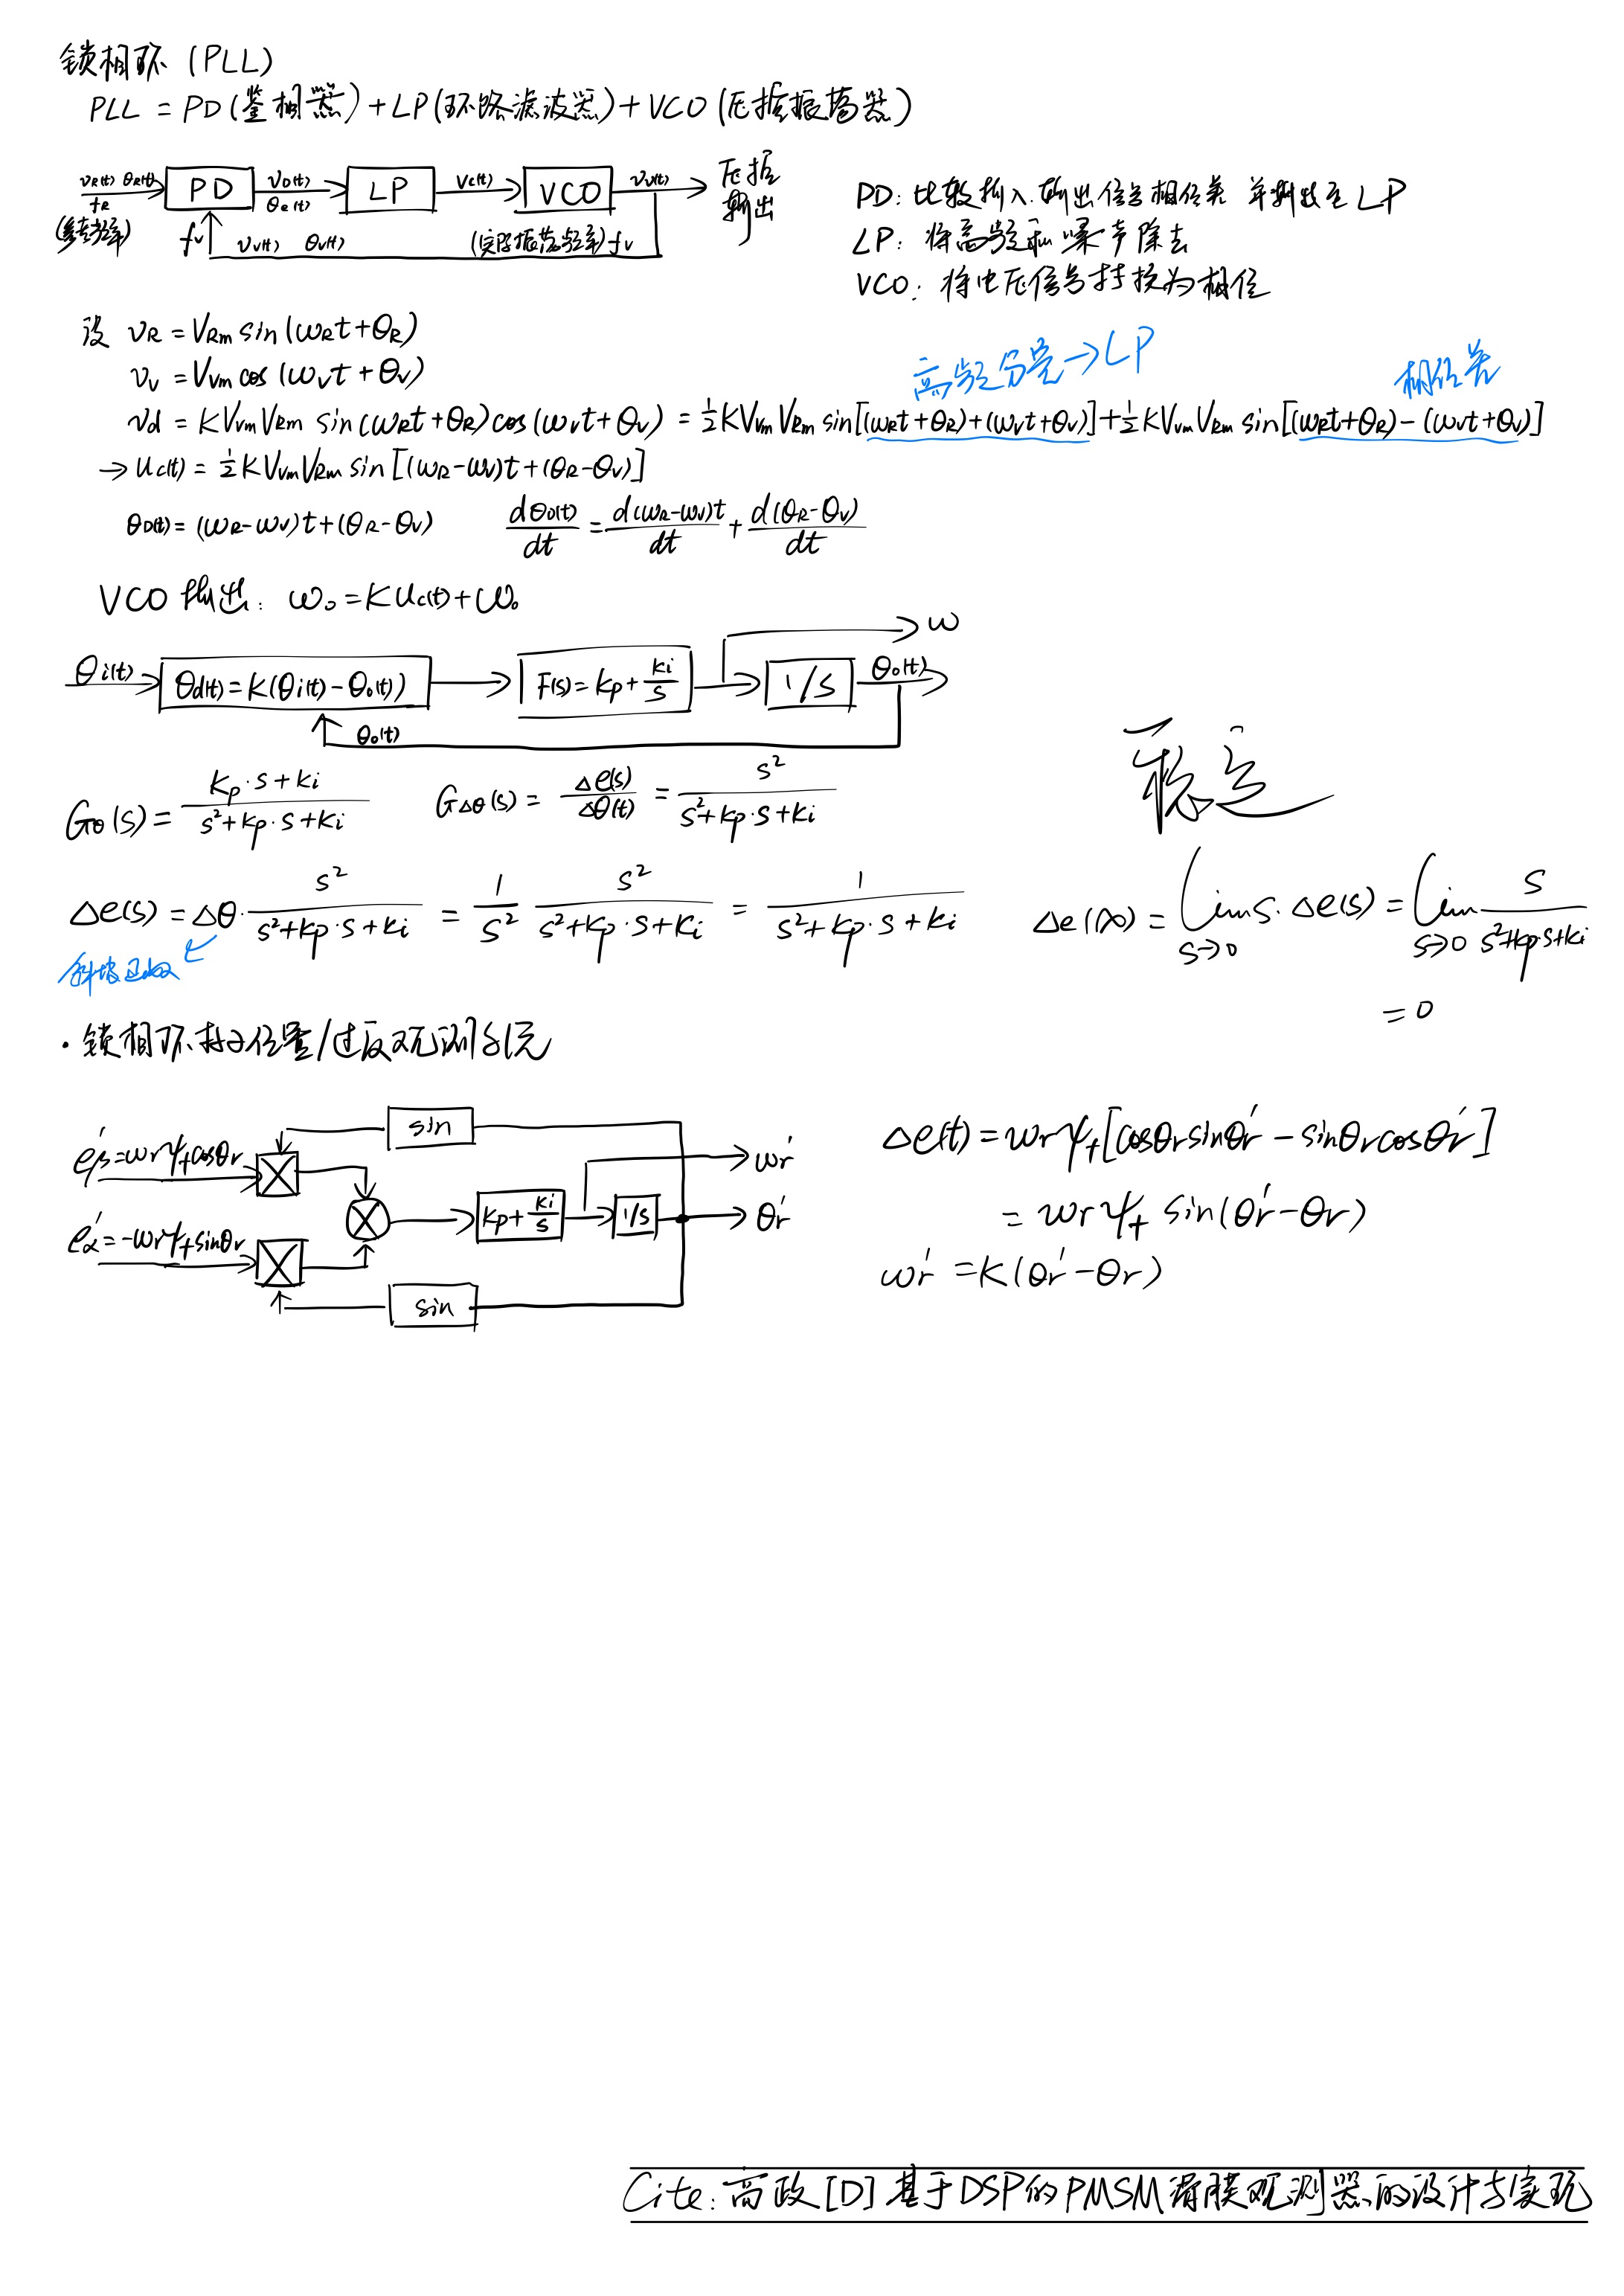 锁相环 (PLL)
PLL = PD(鉴相器) + LP(环路滤波器) + VCO (压控振荡器)
vR(t) θR(t) PD vD(t) LP Vc(t) VCO vv(t) 压控
fR θe(t) 输出
(参考频率) fv vv(t) θv(t) (实际振荡频率) fv
PD: 比较输入.输出信号相位差 并输出至 LP
LP: 将高频和噪声除去
VCO: 将电压信号转换为相位
设 vR = VRm sin(ωRt+θR)
vv = Vvm cos (ωvt + θv)
高频分量→LP 相位差
vd = KVvmVRm sin(ωRt+θR)cos(ωvt+θv) = ½KVvmVRm sin[(ωRt+θR)+(ωvt+θv)]+½KVvmVRm sin[(ωRt+θR)-(ωvt+θv)]
→ uc(t) = ½KVvmVRm sin[(ωR-ωv)t+(θR-θv)]
θD(t) = (ωR-ωv)t+(θR-θv) dθD(t)/dt = d(ωR-ωv)t/dt + d(θR-θv)/dt
VCO 输出: ωo = Kuc(t)+ωo
θi(t) θd(t)=K(θi(t)-θo(t)) F(s)=kp+ki/s 1/s θo(t) ω
θo(t)
Gθ(s) = (kp·s+ki)/(s²+kp·s+ki) GΔθ(s) = Δe(s)/Δθ(t) = s²/(s²+kp·s+ki)
稳定
Δe(s) = Δθ·s²/(s²+kp·s+ki) = 1/s² s²/(s²+kp·s+ki) = 1/(s²+kp·s+ki)
斜坡函数
Δe(∞) = lim s→0 s·Δe(s) = lim s→0 s/(s²+kp·s+ki)
= 0
· 锁相环转子位置/速度观测系统
sin
eβ'=ωrψf cosθr
ωr'
kp+ki/s 1/s θr'
eα'=-ωrψf sinθr
sin
Δe(t) = ωrψf[cosθr sinθr' - sinθr cosθr']
= ωrψf sin(θr'-θr)
ωr' = K(θr'-θr)
Cite: 高政[D] 基于DSP的PMSM滑膜观测器的设计与实现